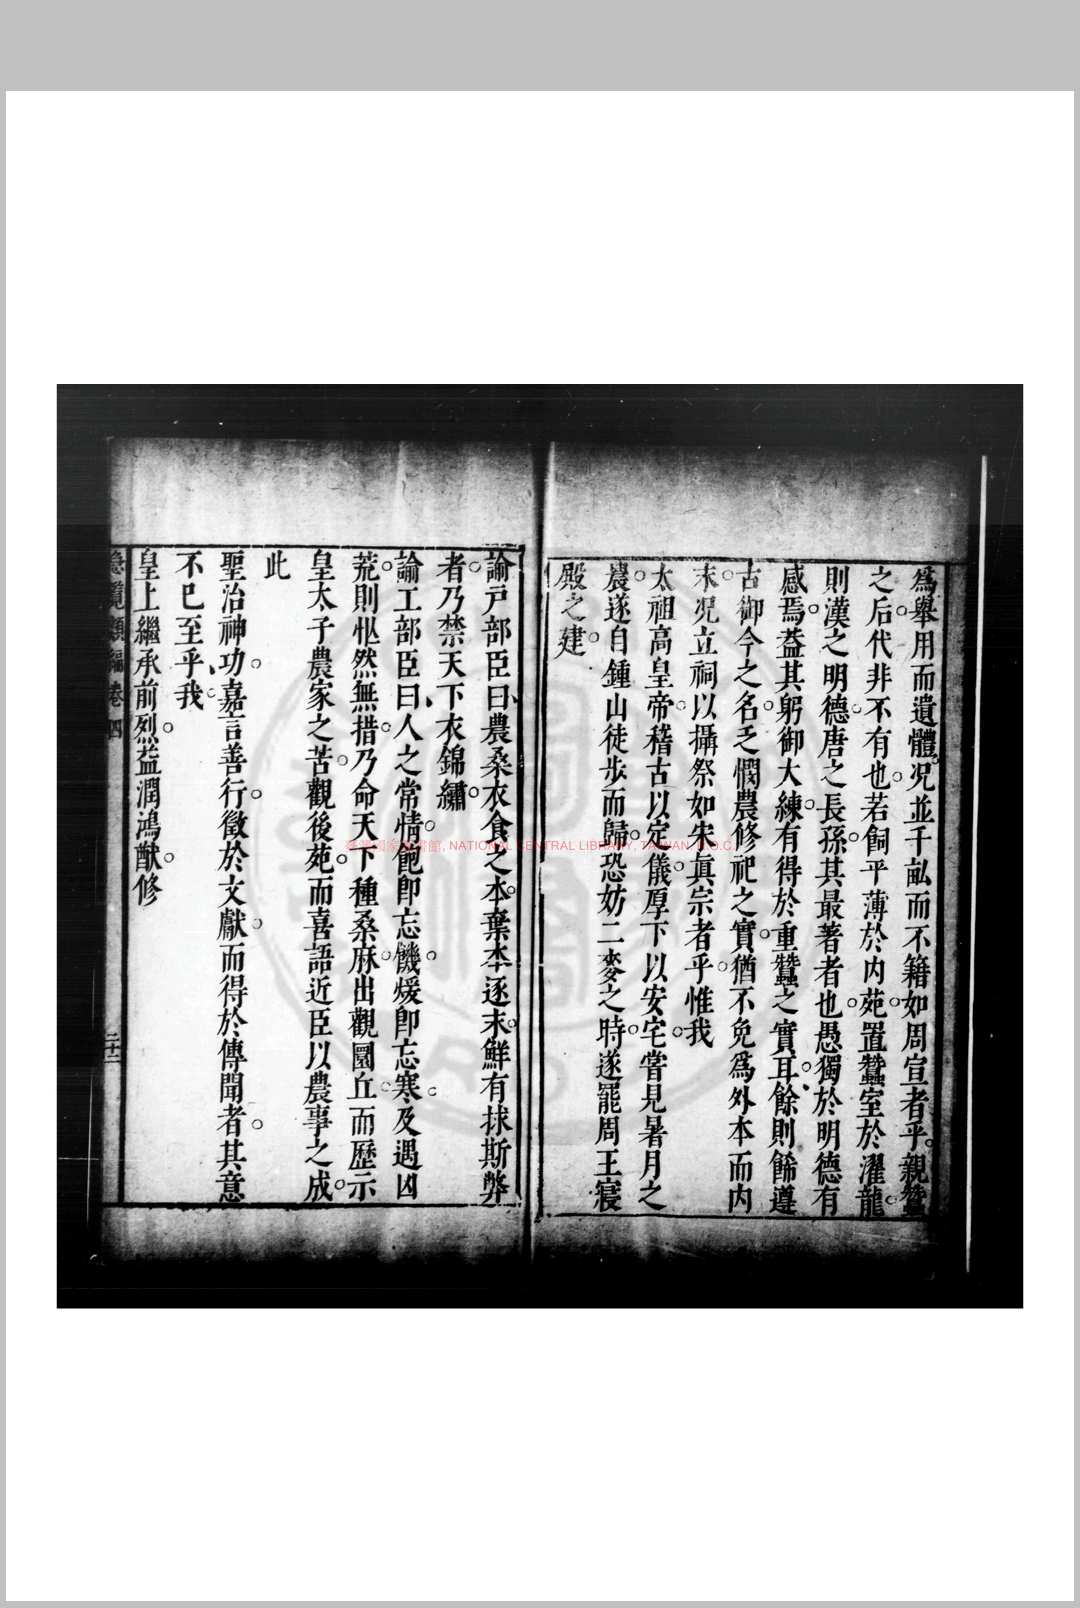 爲舉用而遺體況並千畝而不籍如周宣者乎親蠶
之后代非不有也若飼平薄於内苑置蠶室於濯龍
則漢之明德唐之長孫其最著者也愚獨於明德有
感焉葢其躬御大練有得於重蠶之實耳餘則餙遵
古御今之名乏憫農修祀之實猶不免爲外本而内
末況立祠以攝祭如宋眞宗者乎惟我
太祖高皇帝稽古以定儀厚下以安宅嘗見暑月之
農遂自鍾山徒步而歸恐妨二麥之時遂罷周王寢
殿之建
諭戸部臣曰農桑衣食之本棄本逐末鮮有捄斯弊
者乃禁天下衣錦繡
諭工部臣曰人之常情飽卽忘饑煖卽忘寒及遇凶
荒則恇然無措乃命天下種桑麻出觀圜丘而歷示
皇太子農家之苦觀後苑而喜語近臣以農事之成
此
聖治神功嘉言善行徵於文獻而得於傳聞者其意
不已至乎我
皇上繼承前烈益潤鴻猷修
急覽類編 卷四 二十二
臺灣國家圖書館, NATIONAL CENTRAL LIBRARY, TAIWAN, R.O.C.